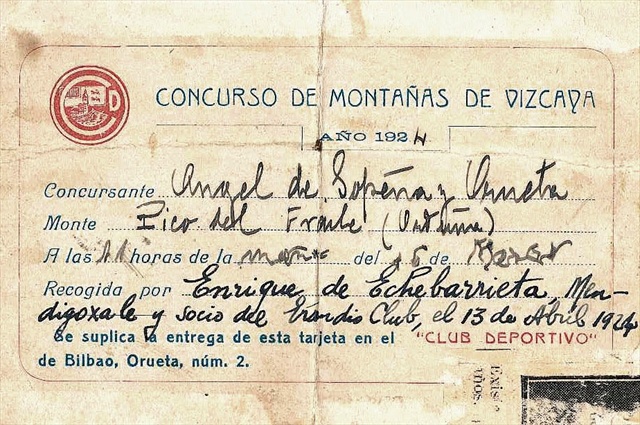 CD
CONCURSO DE MONTAÑAS DE VIZCAYA
AÑO 1924
Concursante Angel de Sopeña y Orueta
Monte Pico del Fraile (Orduña)
A las 11 horas de la mañª del 16 de Marzo
Recogida por Enrique de Echebarrieta, Men-
digoxale y socio del Erandio Club, el 13 de Abril 1924
Se suplica la entrega de esta tarjeta en el "CLUB DEPORTIVO"
de Bilbao, Orueta, núm. 2.
Exis
años.